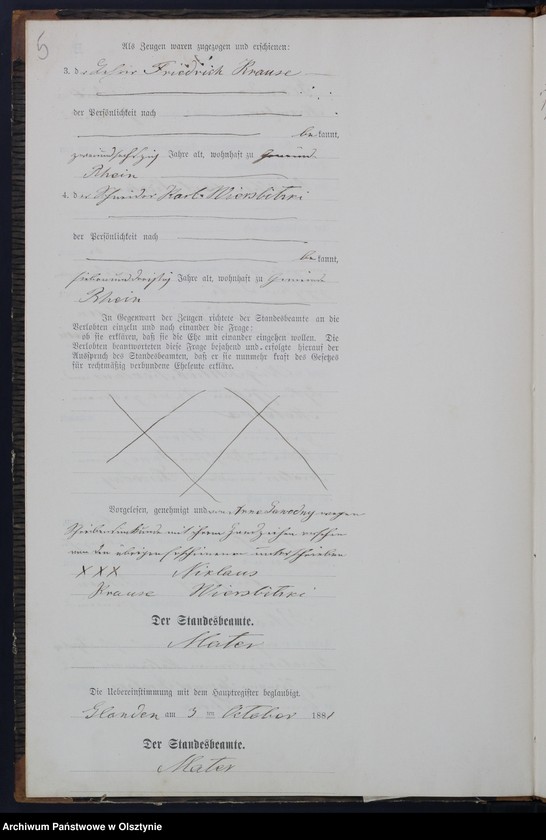 5
Als Zeugen waren zugezogen und erschienen:
3. der Friedrich Krause
der Persönlichkeit nach
bekannt,
zweiundsechszig Jahre alt, wohnhaft zu
Rhein
4. der Schneider Karl Wiersbitzki
der Persönlichkeit nach
bekannt,
siebenunddreißig Jahre alt, wohnhaft zu
Rhein
In Gegenwart der Zeugen richtete der Standesbeamte an die
Verlobten einzeln und nach einander die Frage:
ob sie erklären, daß sie die Ehe mit einander eingehen wollen. Die
Verlobten beantworteten diese Frage bejahend und erfolgte hierauf der
Ausspruch des Standesbeamten, daß er sie nunmehr kraft des Gesetzes
für rechtmäßig verbundene Eheleute erkläre.
Vorgelesen, genehmigt und von Anna wegen
Schreibensunkunde mit ihrem Handzeichen versehen
von den übrigen Erschienenen unterschrieben
XXX Niklaus
Krause Wiersbitzki
Der Standesbeamte.
Mater
Die Uebereinstimmung mit dem Hauptregister beglaubigt.
Glanden am 3 ten October 1881
Der Standesbeamte.
Mater
Archiwum Państwowe w Olsztynie